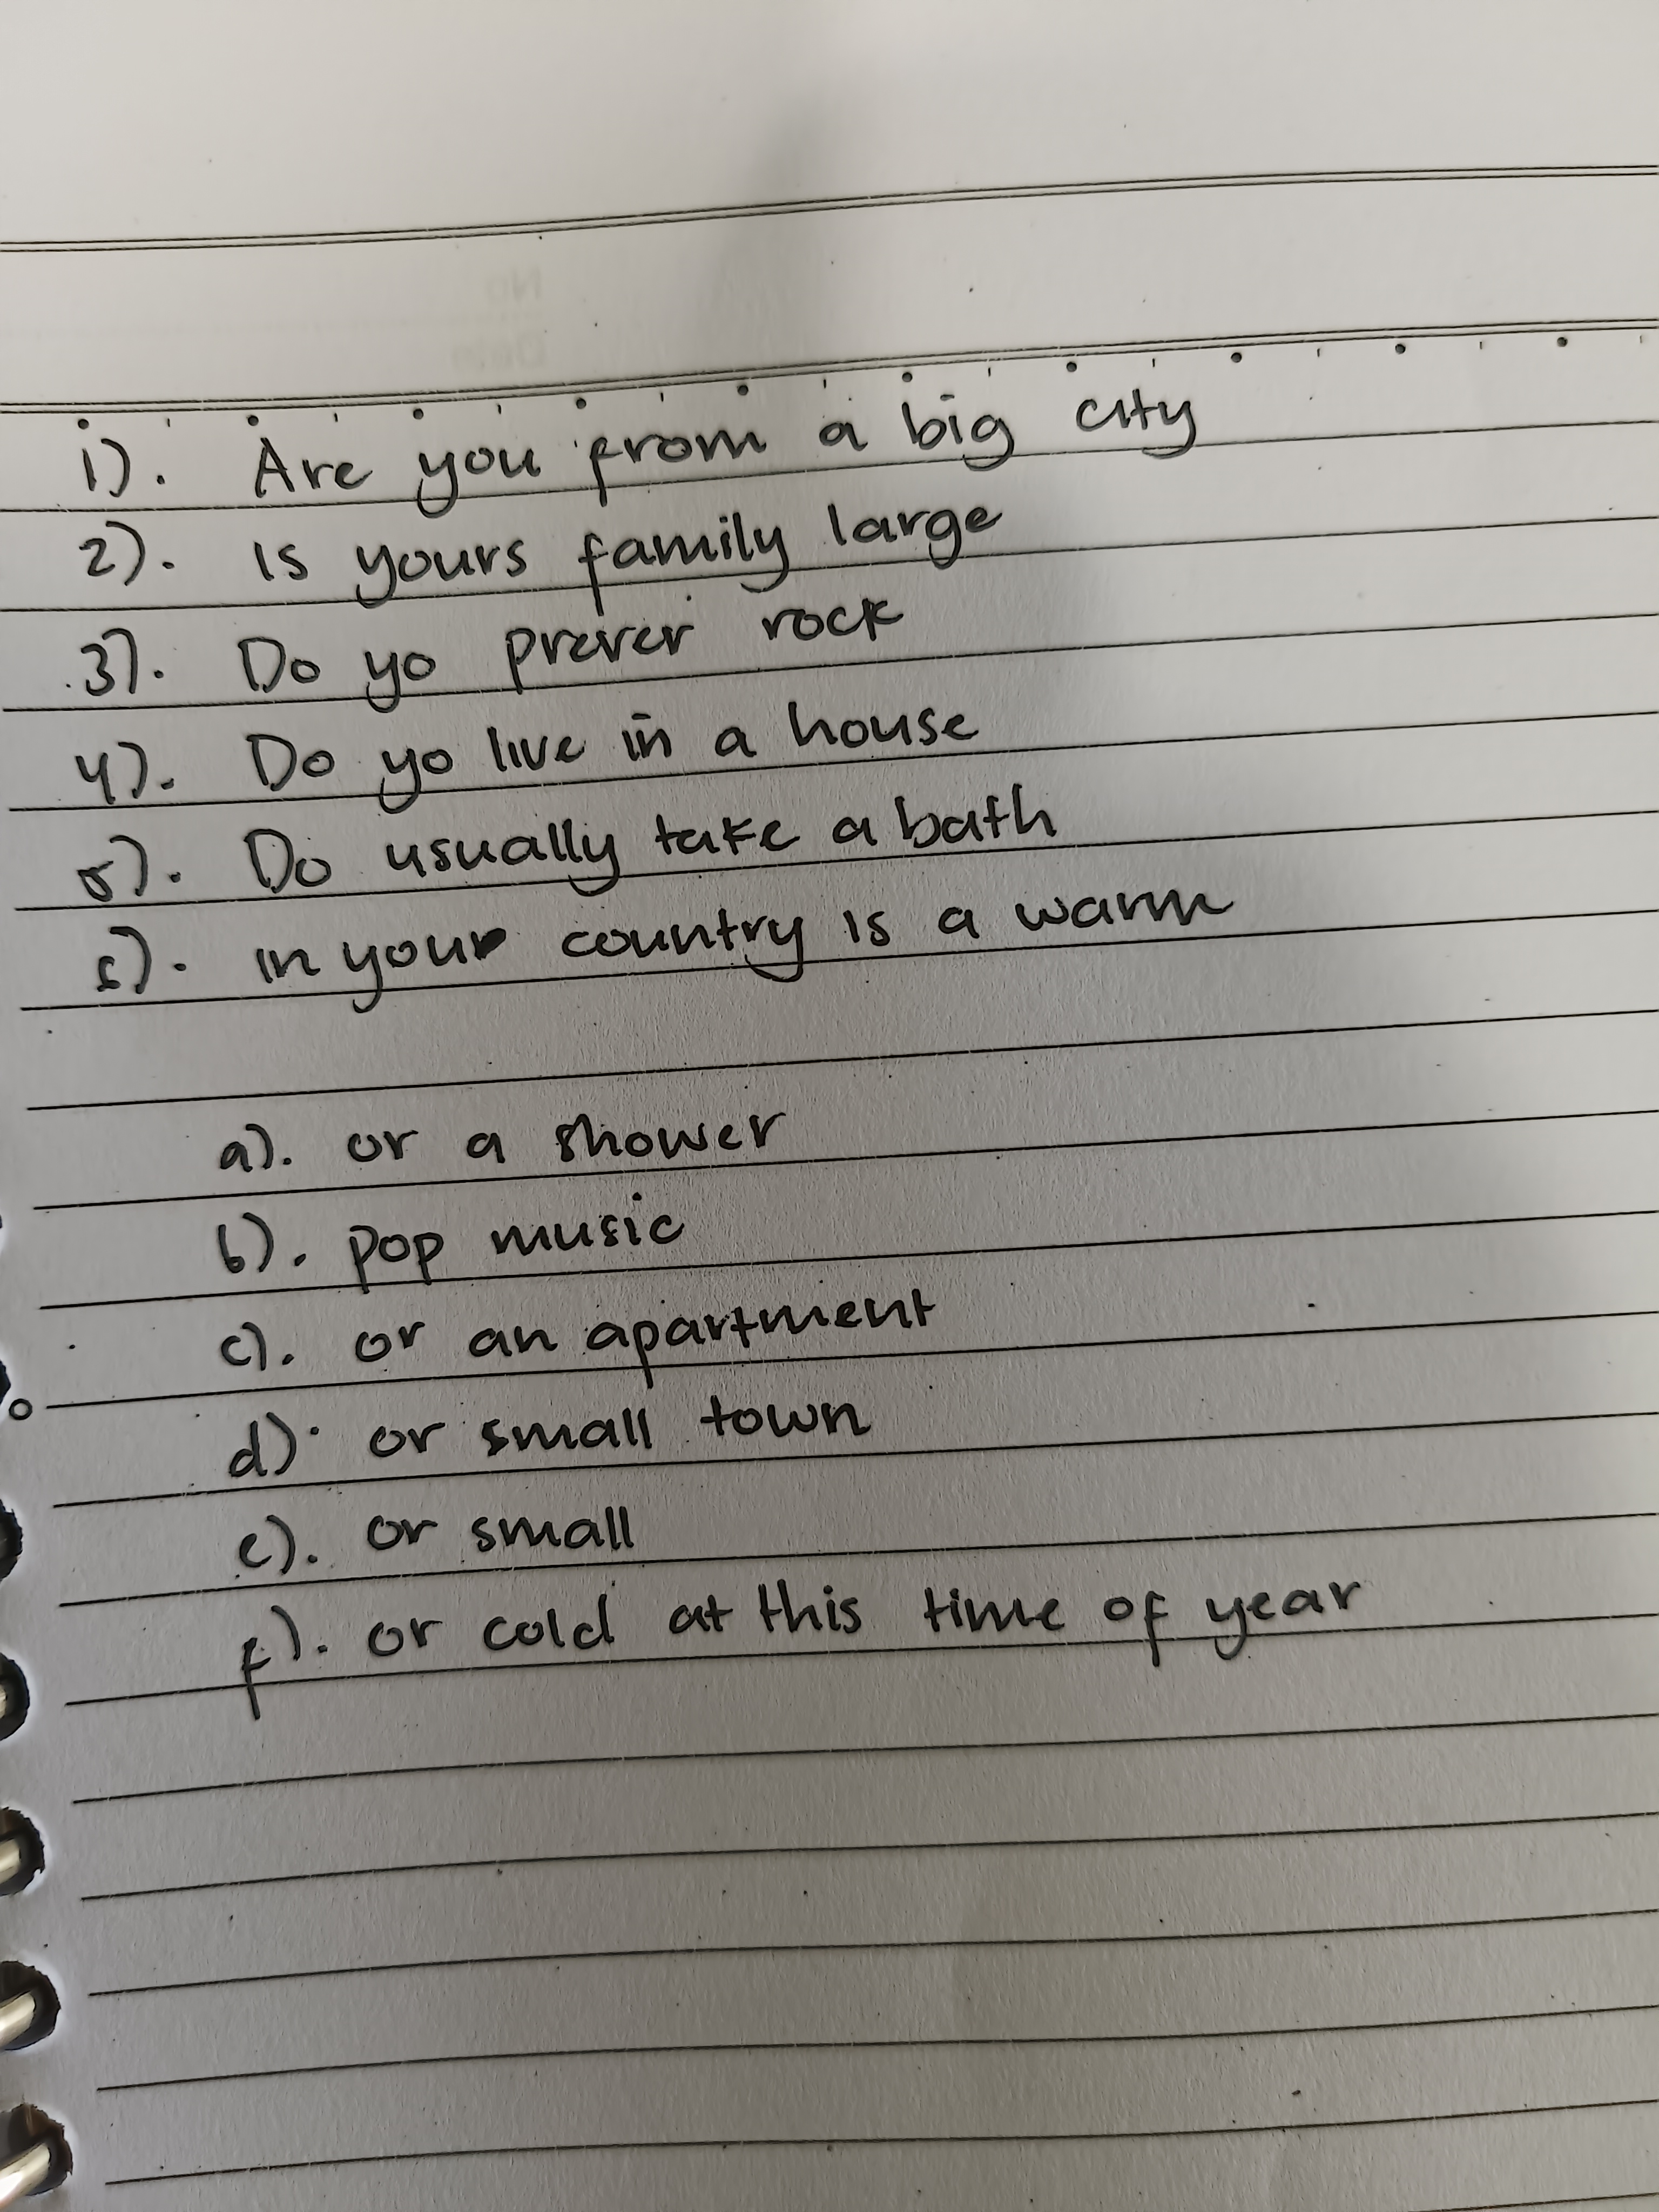 1). Are you from a big city
2). Is yours family large
3). Do yo prever rock
4). Do yo live in a house
5). Do usually take a bath
6). in your country is a warm
a). or a shower
b). pop music
c). or an apartment
d). or small town
e). or small
f). or cold at this time of year